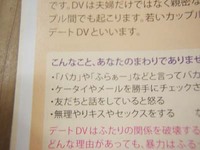 DVは夫婦だけではなく親密な
プル間でも起こります。若いカップル
デートDVといいます。
こんなこと、あなたのまわりでありませ
・「バカ」や「ふらぁー」などと言ってバカ
・ケータイやメールを勝手にチェックさ
・友だちと話をしていると怒る
・無理やりキスやセックスをする
デートDVはふたりの関係を破壊する
どんな理由があっても、暴力はふる